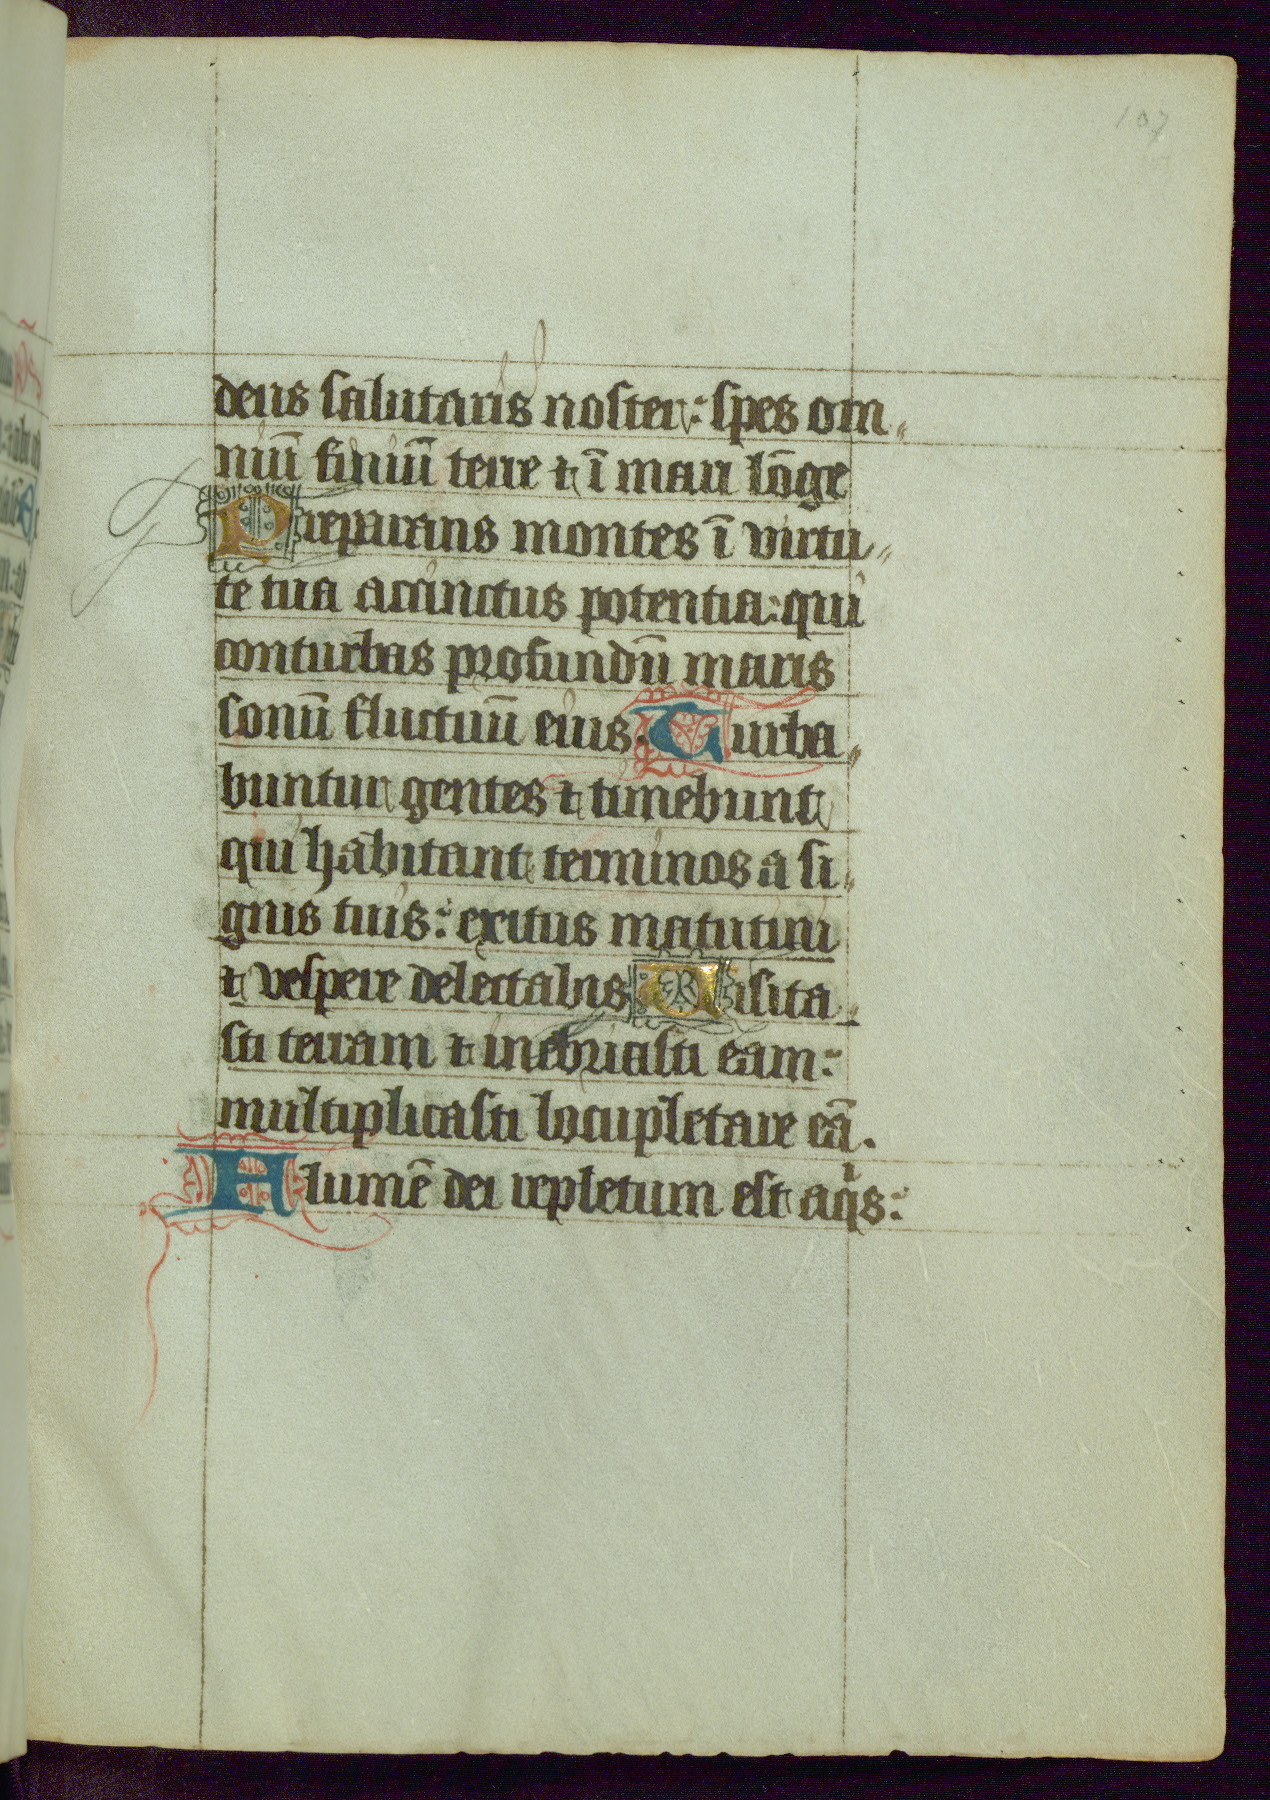 107
deus salutaris noster: spes om
niū finiū terre ⁊ ī mari lōge
Preparans montes ī virtu
te tua accinctus potentia: qui
conturbas profundū maris
sonū fluctuū eius. Turba
buntur gentes ⁊ timebunt
qui habitant terminos a si
gnis tuis: exitus matutini
⁊ vespere delectabis Visita
sti terram ⁊ inebriasti eam:
multiplicasti locupletare eā.
Flumē dei repletum est aqⁱs: